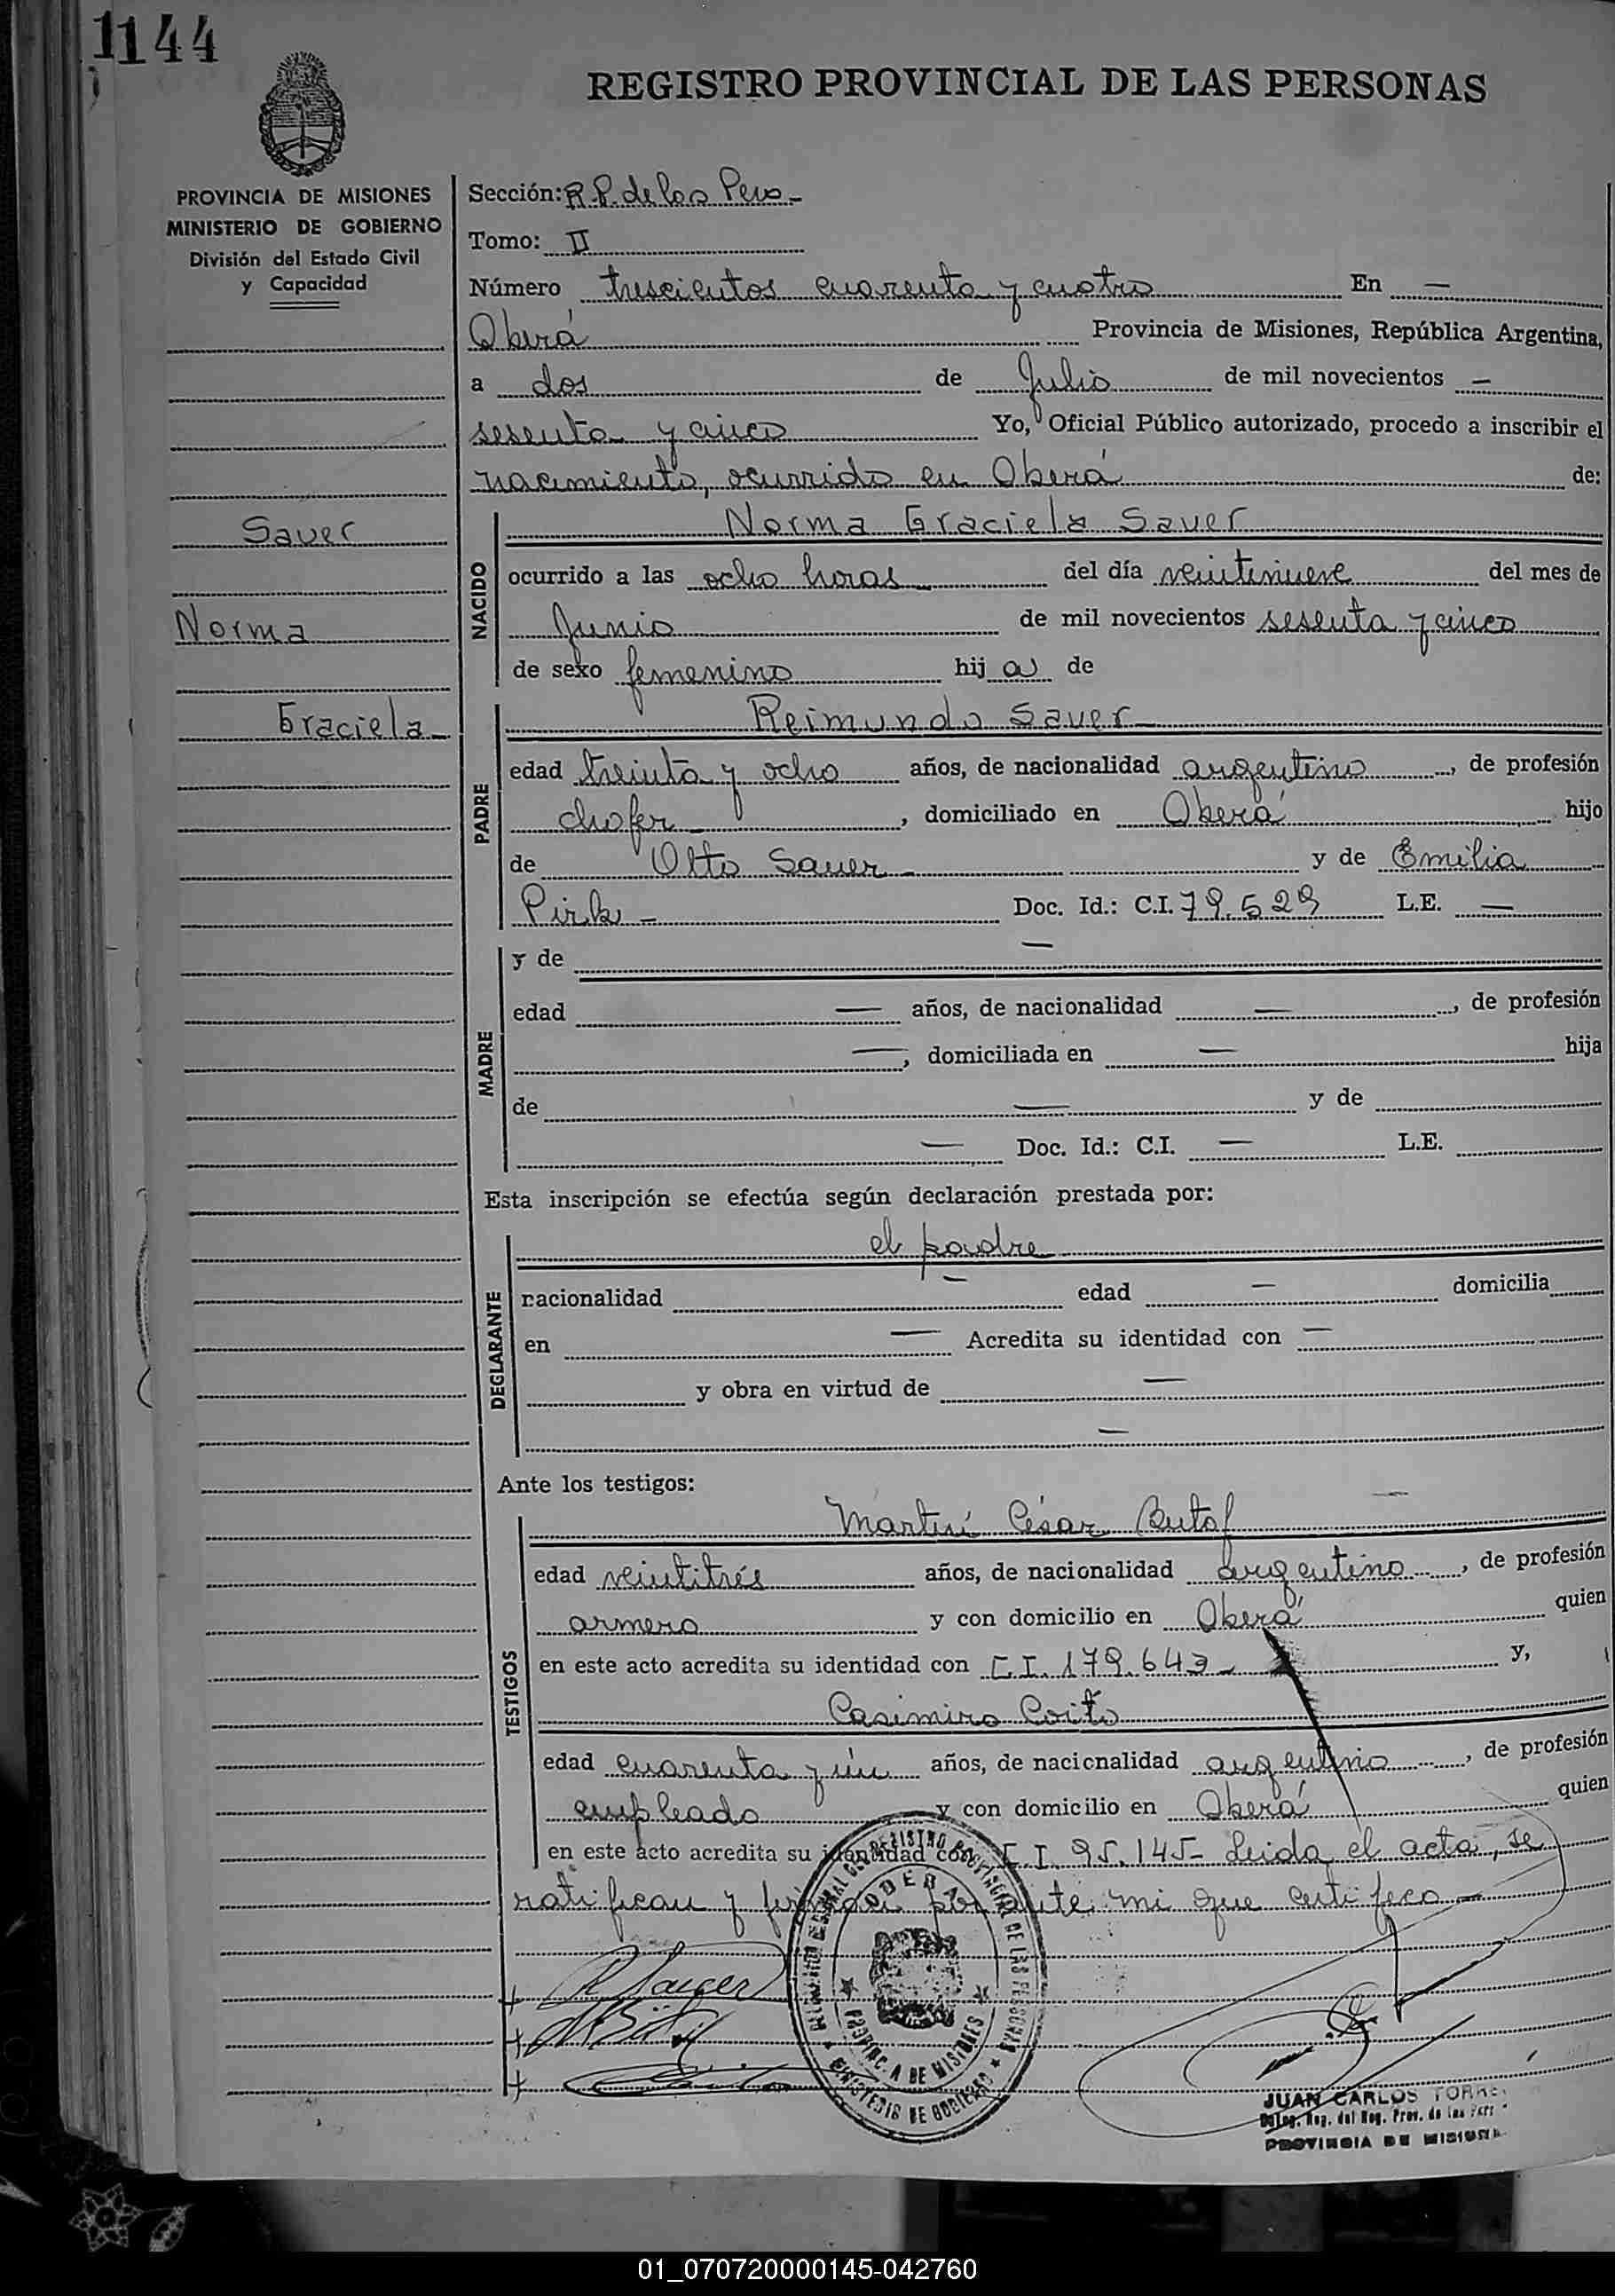 1144
REGISTRO PROVINCIAL DE LAS PERSONAS
PROVINCIA DE MISIONES
MINISTERIO DE GOBIERNO
División del Estado Civil
y Capacidad
Sección: R.P. de las Pers.-
Tomo: II
Número trescientos cuarenta y cuatro En —
Oberá Provincia de Misiones, República Argentina,
a dos de Julio de mil novecientos —
sesenta y cinco Yo, Oficial Público autorizado, procedo a inscribir el
nacimiento, ocurrido en Oberá de:
Sauer
Norma
Graciela-
NACIDO
Norma Graciela Sauer
ocurrido a las ocho horas del día veintinueve del mes de
Junio de mil novecientos sesenta y cinco
de sexo femenino hij a de
PADRE
Reimundo Sauer-
edad treinta y ocho años, de nacionalidad argentino, de profesión
chofer-, domiciliado en Oberá hijo
de Otto Sauer- y de Emilia
Pirk- Doc. Id.: C.I. 79.529 L.E. —
MADRE
y de —
edad — años, de nacionalidad —, de profesión
—, domiciliada en — hija
de — y de
— Doc. Id.: C.I. — L.E.
Esta inscripción se efectúa según declaración prestada por:
DECLARANTE
el padre
nacionalidad — edad — domicilia
en — Acredita su identidad con —
y obra en virtud de —
—
Ante los testigos:
TESTIGOS
Martín César Butof —
edad veintitrés años, de nacionalidad argentino, de profesión
armero y con domicilio en Oberá quien
en este acto acredita su identidad con C.I. 179.643- y,
Casimiro Coito
edad cuarenta y ún años, de nacionalidad argentino, de profesión
empleado y con domicilio en Oberá quien
en este acto acredita su identidad con C.I. 95.145- Leida el acta, se
ratifican y firman por ante mi que certifico-
PROVINCIA DE MISIONES
MINISTERIO DE GOBIERNO
JUAN CARLOS TORRES
Deleg. Reg. del Reg. Prov. de las Pers.
PROVINCIA DE MISIONES
01_070720000145-042760